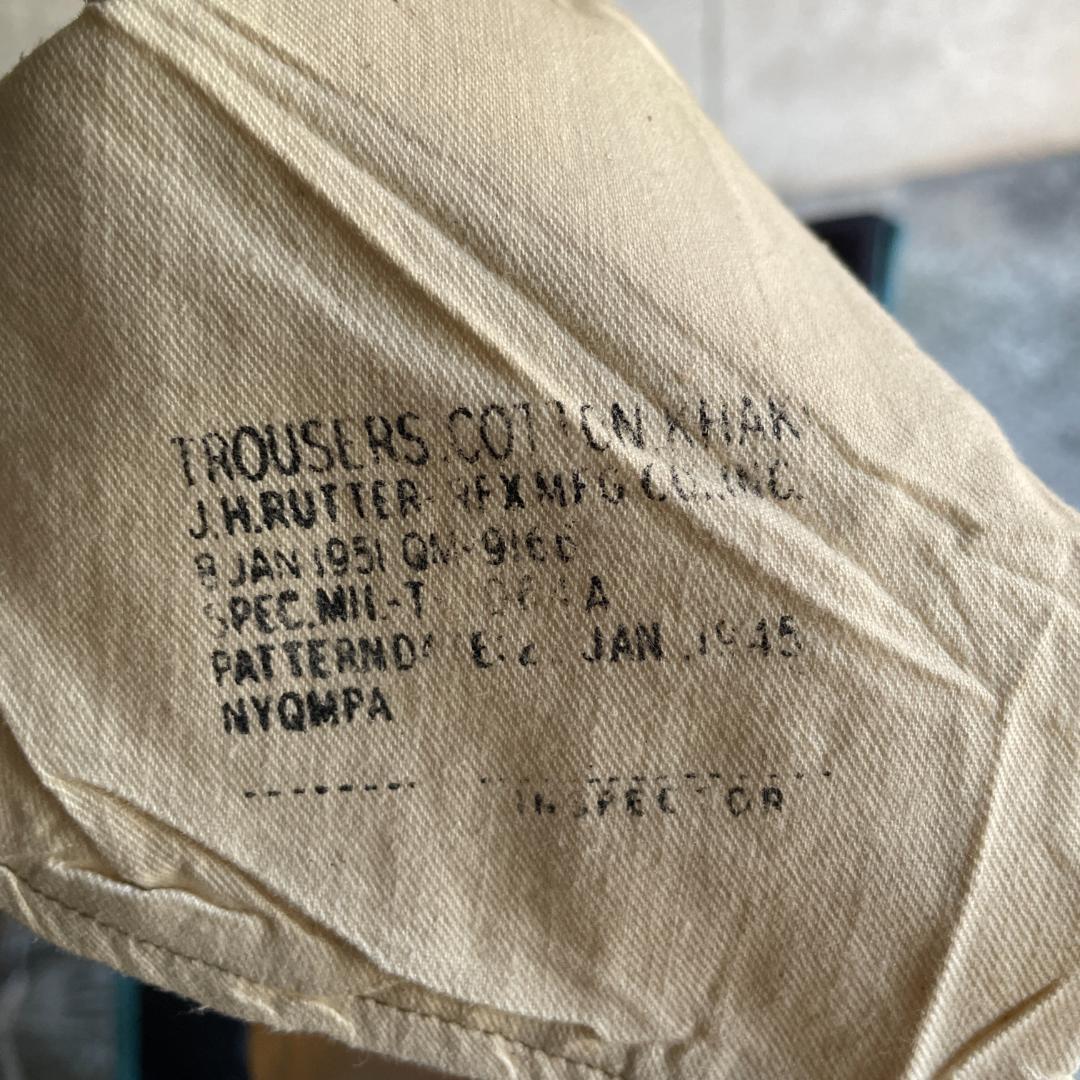 TROUSERS, COTTON KHAKI
J.H.RUTTER-REX MFG CO.,INC.
8 JAN 1951 QM-9166
SPEC.MIL-T
PATTERN DATE: JAN 1945
NYQMPA
INSPECTOR